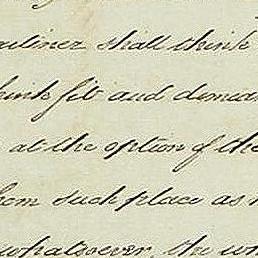 shall think
think fit and deman
at the option of the
hem such place as
whatsoever, the un